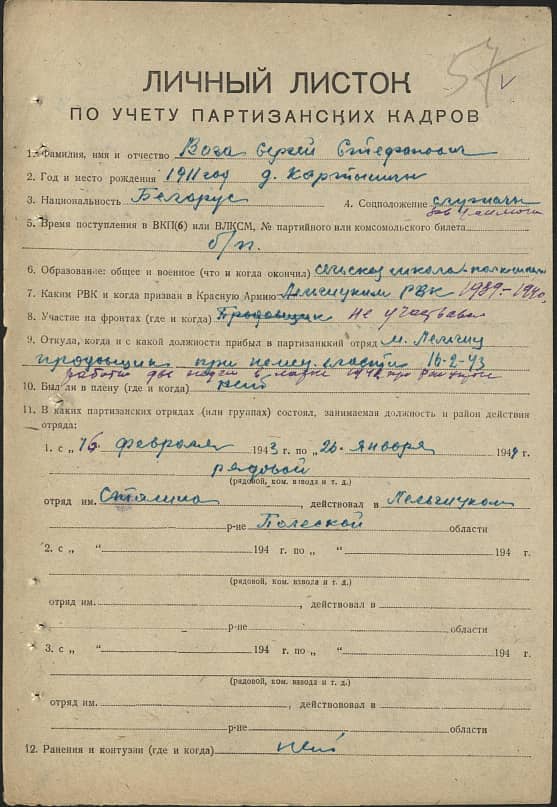 57 v
ЛИЧНЫЙ ЛИСТОК
ПО УЧЕТУ ПАРТИЗАНСКИХ КАДРОВ
1. Фамилия, имя и отчество Вога Сергей Стефанович
2. Год и место рождения 1911 год д. Картыничи
3. Национальность Беларус 4. Соцположение служащий
5. Время поступления в ВКП(б) или ВЛКСМ, № партийного или комсомольского билета
б/п.
6. Образование: общее и военное (что и когда окончил) сельская школа
7. Каким РВК и когда призван в Красную Армию Лельчицким РВК 1939-1940
8. Участие на фронтах (где и когда) Продовщик не участвовал
9. Откуда, когда и с какой должности прибыл в партизанский отряд м. Лельчиц
продовщик при немец. власти 16-2-43
работал две недели в 1942 при
10. Был ли в плену (где и когда) нет
11. В каких партизанских отрядах (или группах) состоял, занимаемая должность и район действия
отряда:
1. с „ 16 февраля 1943 г. по „ 26 января 1944 г.
рядовой
(рядовой, ком. взвода и т. д.)
отряд им. Сталина, действовал в Лельчицком
р-не Полеской области
2. с „ “ 194 г. по „ “ 194 г.
(рядовой, ком. взвода и т. д.)
отряд им. , действовал в
р-не области
3. с „ “ 194 г. по „ “ 194 г.
(рядовой, ком. взвода и т. д.)
отряд им. , действовал в
р-не области
12. Ранения и контузии (где и когда) нет